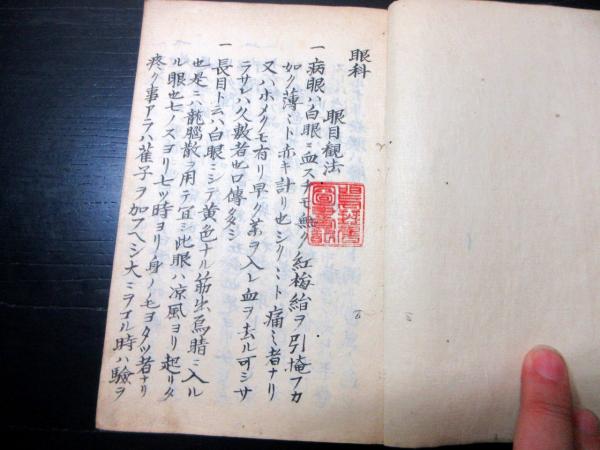 眼科
眼目観法
一病眼ハ白眼ニ血スチモ無ク紅梅絹ヲ引掩フカ
如ク薄ミト赤キ計リ也シクミト痛ミ者ナリ
又ハホメクモ有リ早ク薬ヲ入レ血ヲ去ル可シサ
ラサレハ久敷者也口傳多シ
一長目ト云ハ白眼ミシテ黄色ナル筋出烏睛ニ入ル
也是ニハ龍腦散ヲ用テ宜シ此眼ハ凉風ヨリ起リタ
ル眼也七ノスヨリ七ツ時ヨリ身ノモヨタツ者ナリ
疼ク事アラハ雀子ヲ加フヘシ大ミヲコル時ハ驗ヲ